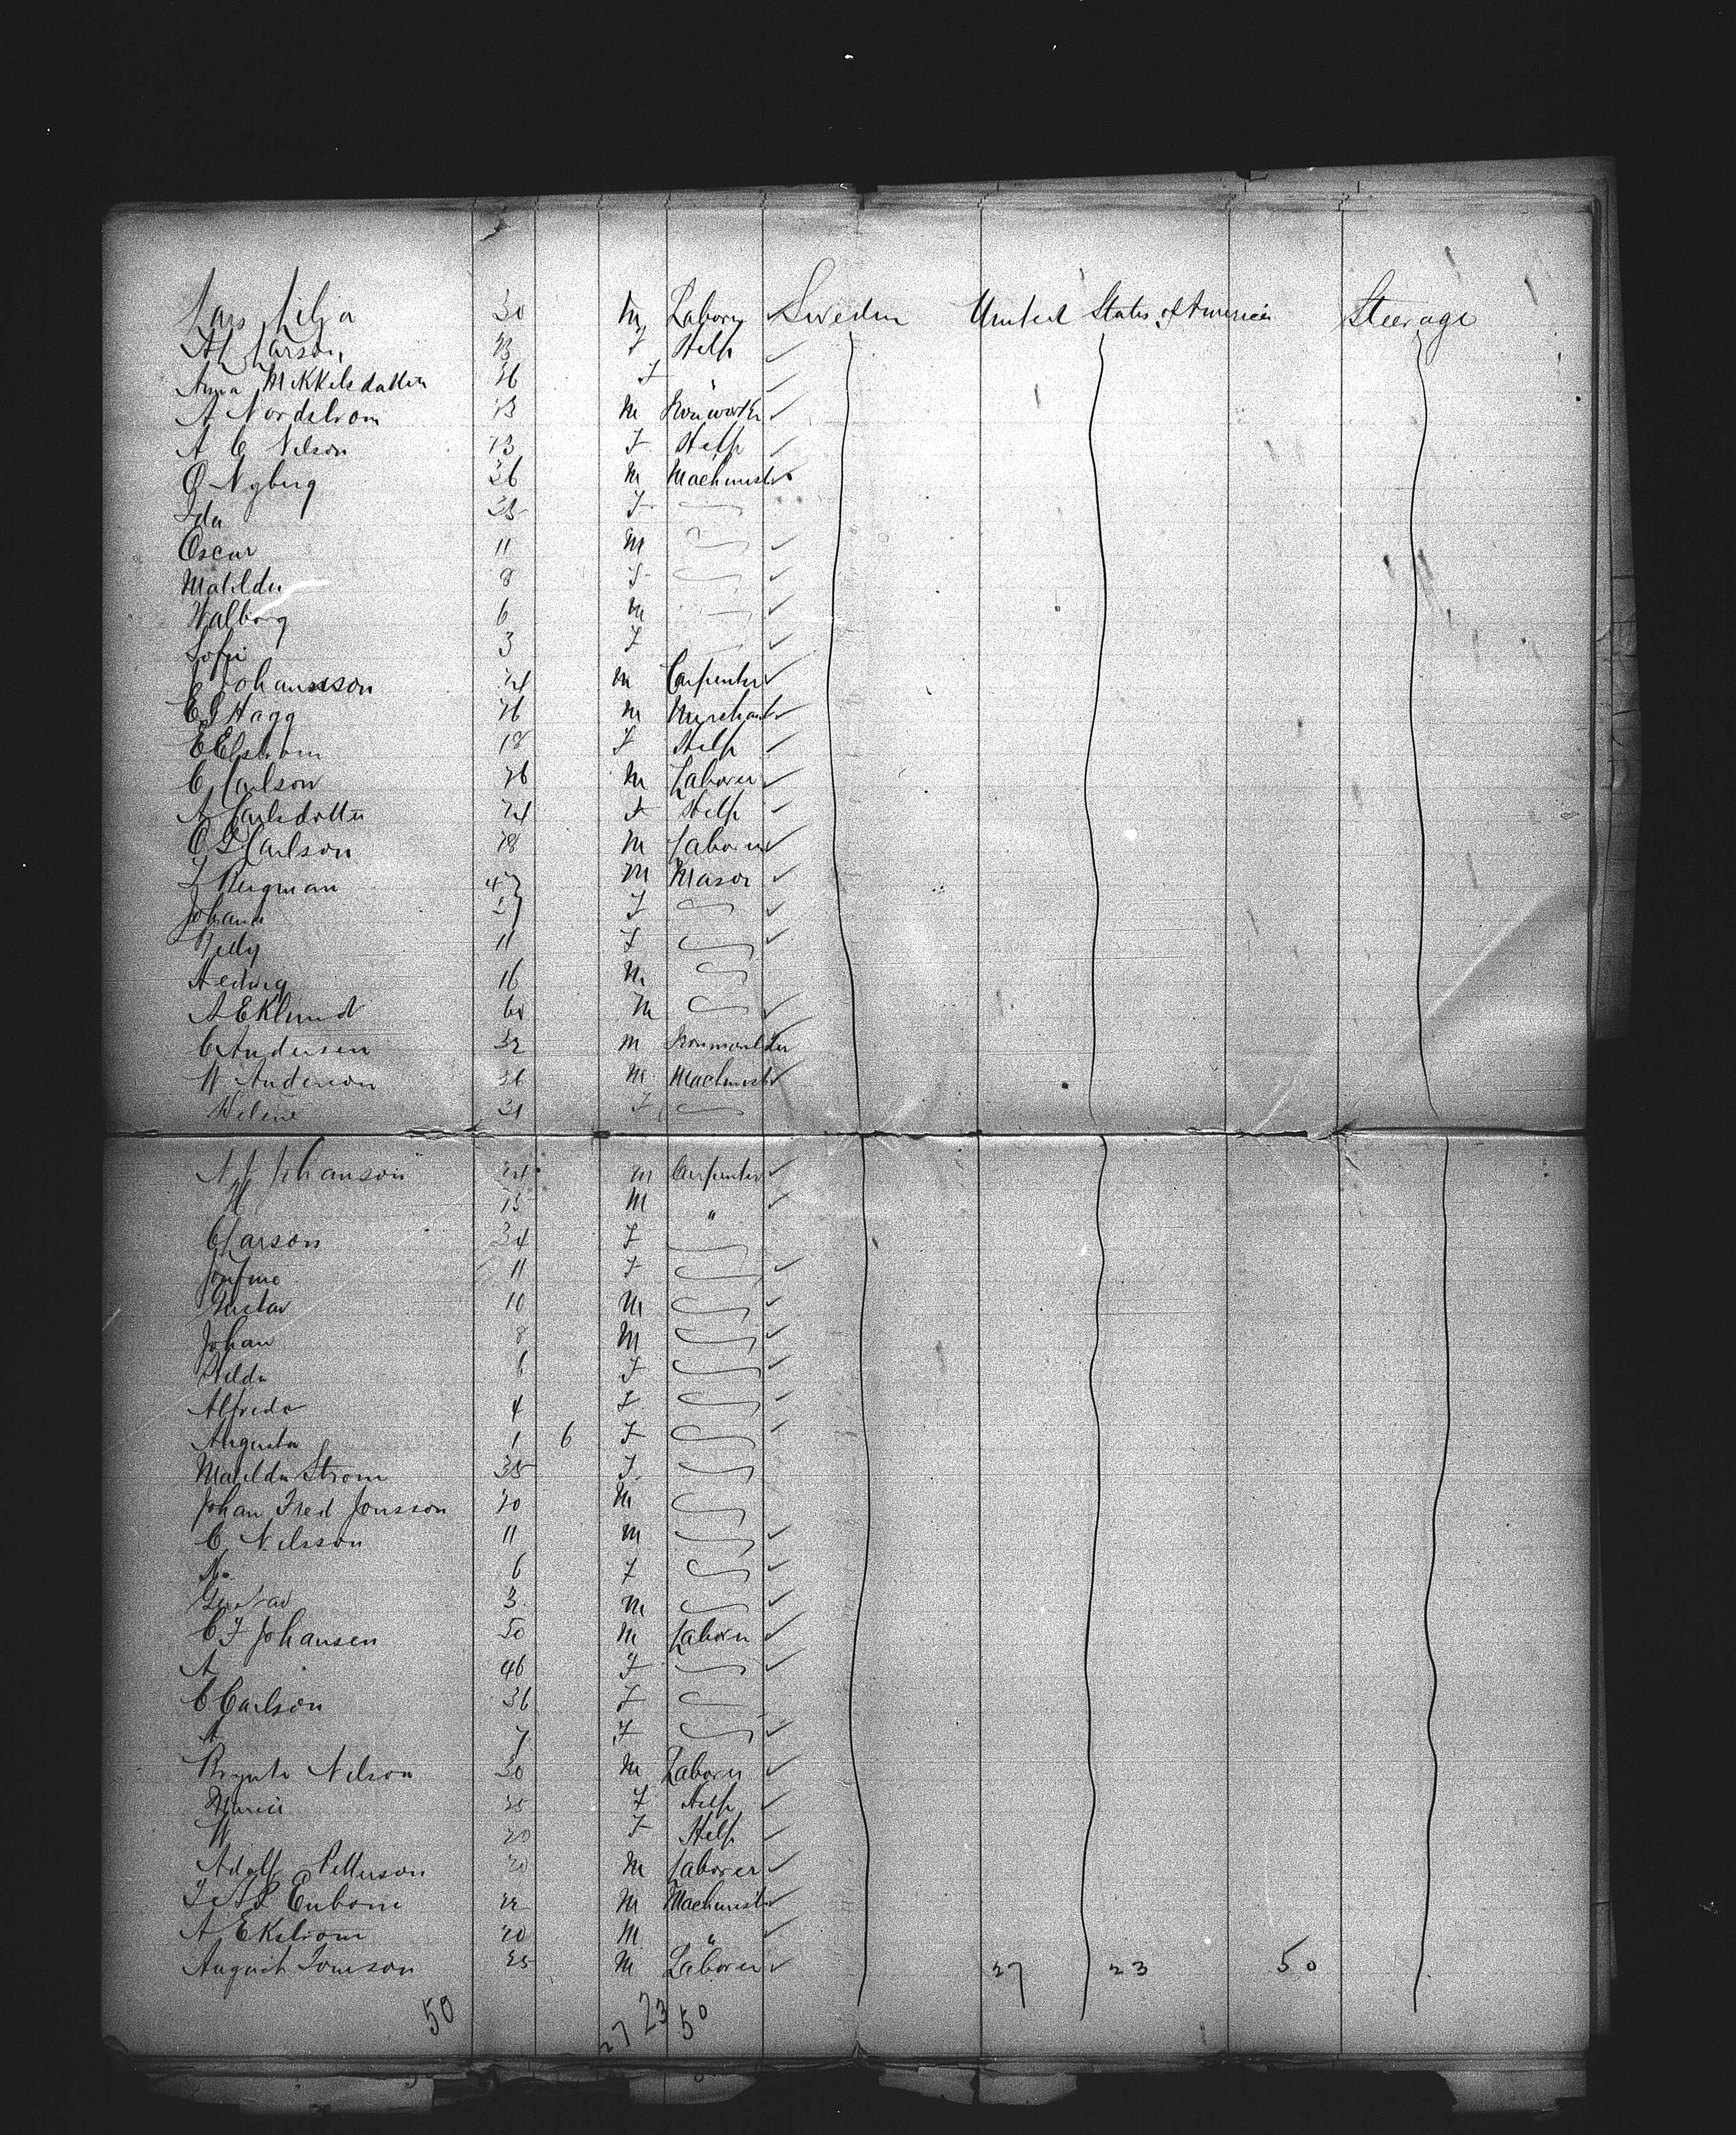 Lars Lilja 30 M Laborer Sweden United States of America Steerage
Larson F Help
Anna Mikkelsdatter 26 F "
A Nordstrom 23 M Ironworker
A C Nilson 23 F Help
O Nyberg 36 M Machinist
Ida F
Oscar 11 M
Matilda 8 F
Walborg 6 M
Sofi 3 F
Johansson 24 M Carpenter
C G Hagg 26 M Merchant
E Elstrom 18 F Help
C Carlson 26 M Laborer
A Carlsdotter 24 F Help
C Carlson 28 M Laborer
Bergman 47 M Mason
Johana 37 F
Nelly 11 F
Hedwig 16 M
A Eklund M
C Andersen 32 M Ironmoulder
W Anderson 36 M Machinist
Helene 31 F
A J Johanson 24 M Carpenter
15 M "
C Larson 34 F
Josfine 11 F
Gustav 10 M
Johan 8 M
Hilda 6 F
Alfreda 4 F
Augusta 1 6 F
Matilda Strom 35 F
Johan Fred Jonsson 20 M
C Nilsson 11 M
6 F
Gustav 3 M
C F Johansen 50 M Laborer
A 46 F
C Carlson 36 F
A 7 F
Nilson 30 M Laborer
Maria 25 F Help
20 F Help
Adolf Petterson 20 M Laborer
Enbom 22 M Machinist
A Ekstrom 20 M "
August Jonson 25 M Laborer 27 23 50
50 27 23 50